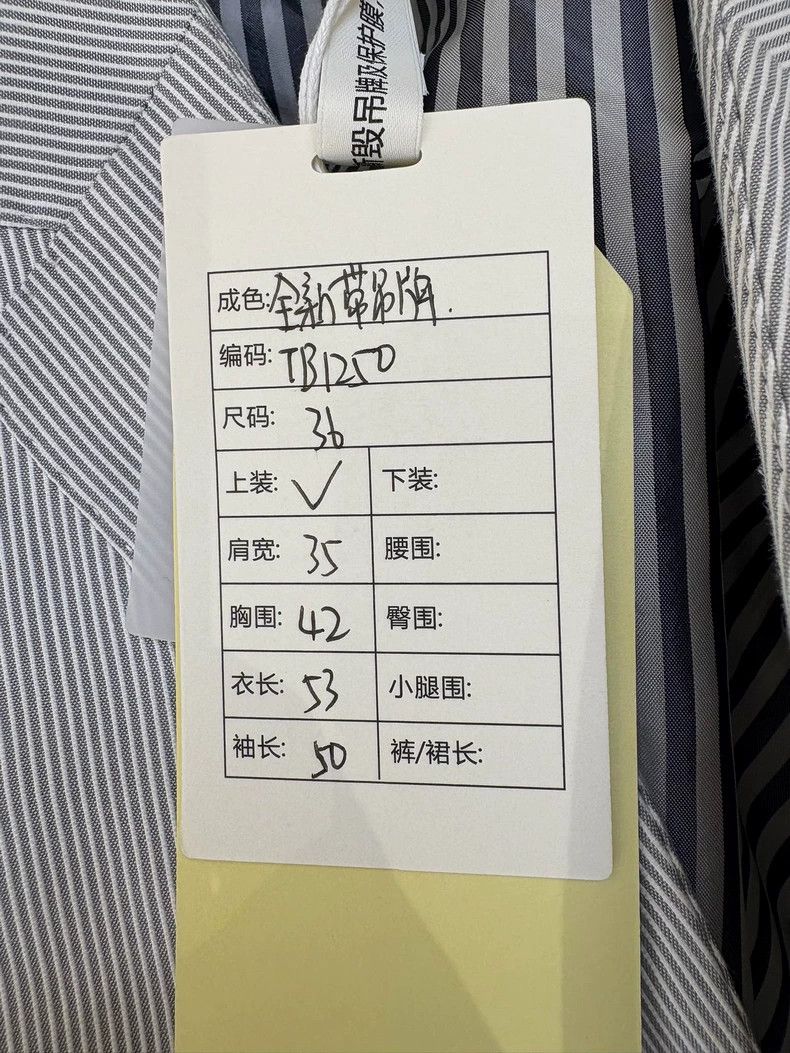 毁吊牌及保护膜
成色:全新带吊牌.
编码:TB1250
尺码:36
上装:✓ 下装:
肩宽:35 腰围:
胸围:42 臀围:
衣长:53 小腿围:
袖长:50 裤/裙长: